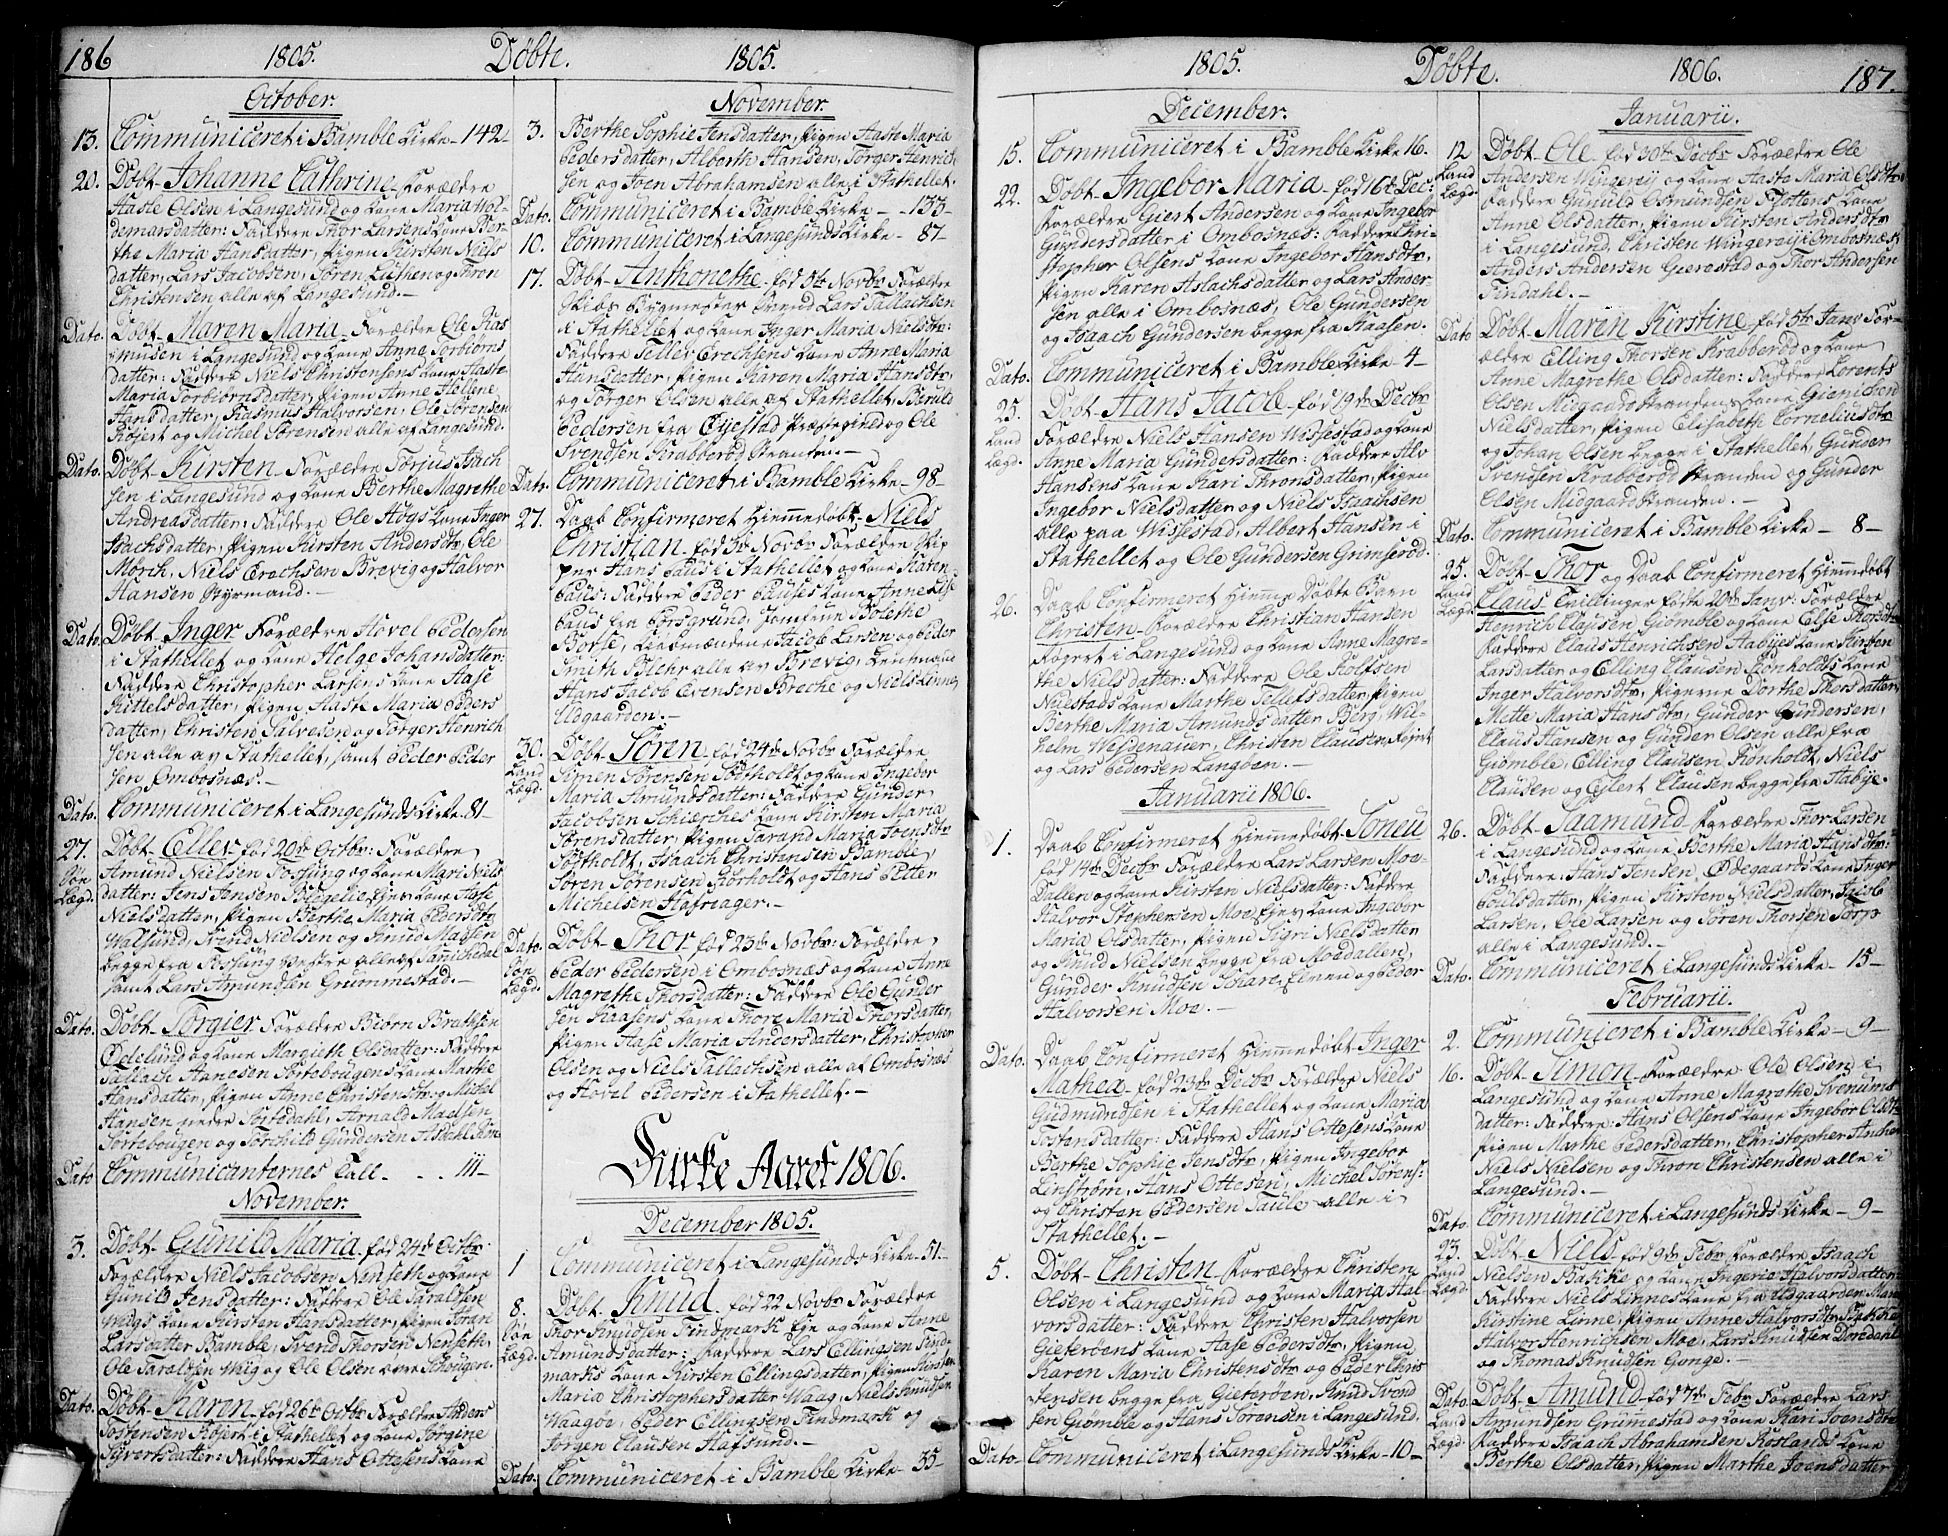 186 1805. Döbte. 1805.
October.
13. Communiceret i Bamble Kirke - 142 -
20. Döbt Johanne Cathrine Forældre
Haste Olsen i Langesund og Kone Maria Wol-
demarsdatter: Faddere Thor Larsens Kone Ber-
the Maria Hansdatter, Pigen Kirsten Niels
datter, Lars Jacobsen, Sören og Thron
Christensen alle af Langesund. -
Dato. Döbt Maren Maria Forældre Ole Ras
musen i Langesund og Kone Anne Torbiörns
datter: Faddere Niels Christensens Kone Haste
Maria Torbiörnsdatter, Pigen Anne Hellene
Hansdatter, Rasmus Halvorsen, Ole Sörensen
Röjert og Michel Sörensen alle af Langesund.
Dato. Döbt Kirsten Forældre Torjus Isach
sen i Langesund og Kone Berthe Magrethe
Andreasdatter: Faddere Ole Höys Kone Inger
Isachsdatter, Pigen Kirsten Andersdtr, Ole
Mörch, Niels Erechsen Brevig og Halvor
Hansen Styrmand. -
Dato. Döbt Inger Forældre Hovel Pedersen
i Stathellet og Kone Helge Johansdatter:
Faddere Christopher Larsens Kone Aase
Kittelsdatter, Pigen Haste Maria Peders
datter, Christen Salvesen og Törger Henrich
sen alle av Stathellet, samt Peder Peder
sen, Ombosnæs. -
Dato. Communiceret i Langesunds Kirke 81 -
27. Söe Lægd. Döbt Eller föd 20de Octbr: Forældre
Amund Nielsen Fossjung og Kone Mari Niels
datter: Jens Jensen Kone Aase
Nielsdatter, Pigen Berthe Maria Pedersdtr
Valsund, Svend Nielsen og Knud Madsen
begge fra Fossung alle af Sanichedal
samt Lars Amundsen Gruommestad. -
Dato. Döbt Törgier Forældre Biörn Brathsen
Ödelund og Kone Margieth Olsdatter: Faddere
Tallach Aanesen Törtebougens Kone Marthe
Hansdatter, Pigen Anne Christensdtr og Michel
Hansen nedre Arnald Madsen
Törtebougen og Torchild Gündersen
Dato. Communicanternes Tall - - - 111 -
November.
3. Döbt Gunild Maria föd 24de Octbr
Forældre Niels Jacobsen Nenseth og Kone
Günild Jensdatter: Faddere Ole Taraldsen
Wiigs Kone Kirsten Hansdatter, Pigen Joran
Larsdatter Bamble, Svend Thorsen Nenseth,
Ole Taraldsen Wiig og Ole Olsen
Dato. Döbt Karen föd 26de Octbr Forældre Anders
Tostensen Röjert i Stathellet og Kone Jörgine
Syvertsdatter: Faddere Hans Ottesens Kone
November.
3. Berthe Sophie Jensdatter, Pigen Haste Maria
Pedersdatter, Alberth Hansen, Törger Henrich
sen og Joen Abrahamsen alle i Stathellet.
Dato. Communiceret i Bamble Kirke - 133 -
10. Communiceret i Langesunds Kirke - 87 -
17. Döbt Anthonethe föd 5te Novbr Forældre
Skibs Bygmester Svend Lars Tallachsen
i Stathellet og Kone Inger Maria Nielsdtr:
Faddere Teller Erechsens Kone Anne Maria
Hansdatter, Pigen Karen Maria Hansdtr,
og Törger Olsen alle af Stathellet,
Pedersen fra Eyestad Præstegield og Ole
Svendsen Krabberöd Stranden -
Dato. Communiceret i Bamble Kirke - 98 -
27. Daab Confirmeret Hiemmedöbt Niels
Christian föd 5te Novbr Forældre Skip
per Hans Paus i Stathellet og Kone Karen
Paus: Faddere Peder Pauses Kone Anne Lise
Paus fra Porsgrund, Jomfrue Bolethe
Borse, Kiöbmændene Jacob Larsen og Peder
Smith Blehr alle av Brevig, Lieutnand
Hans Jacob Evensen Breche og Niels Linne,
Udgaarden. -
30. Land Lægd. Döbt Sören föd 24de Novbr Forældre
Simen Sörensen Södtholdt og Kone Ingebor
Maria Amundsdatter: Faddere Günder
Jacobsen Schierches Kone Kirsten Maria
Sörensdatter, Pigen Tarand Maria Joensdtr
Södtholdt, Isaach Christensen Bamble,
Sören Sörensen Rörholdt og Hans Petter
Michelsen Hafreager. -
Dato Söe Lægd. Döbt Thor föd 23de Novbr: Forældre
Peder Pedersen i Ombosnæs og Kone Anne
Magrethe Thorsdatter: Faddere Ole Günder
sen Kaasens Kone Thore Maria Thorsdatter,
Pigen Aase Maria Andersdatter, Christopher
Olsen og Niels Tallachsen alle af Ombosnæs
og Hovel Pedersen i Stathellet. -
Kirke Aaret 1806.
December 1805.
1 Communiceret i Langesunds Kirke - 51 -
8. Söe Lægd. Döbt Knud föd 22 Novbr Forældre
Thor Knudsen Findmark Eie og Kone Anne
Amundsdatter: Faddere Lars Ellingsen Find
marks Kone Kirsten Ellingsdatter, Pigen Kirsten
Maria Christophersdatter Waag, Niels Knudsen
Waagöe, Peder Ellingsen Findmark og
Jörgen Clausen Hafsund. -
Dato. Communiceret i Bamble Kirke - 55 -
1805. Döbte. 1806. 187.
December.
15. Communiceret i Bamble Kirke 16.
22. Döbt Ingebor Maria föd 16de Dec:
Forældre Giert Andersen og Kone Ingebor
Gündersdatter i Ombosnæs: Faddere Chri-
stopher Olsens Kone Ingebor Hansdtr,
Pigen Karen Aslachsdatter og Lars Ander-
sen alle i Ombosnæs, Ole Gündersen
og Isaach Gündersen begge fra Kaasen.
Dato. Communiceret i Bamble Kirke 4 -
25. Land Lægd. Döbt Hans Jacob föd 19de Decbr
Forældre Niels Hansen Wissestad og Kone
Anne Maria Gündersdatter: Faddere Alv
Hansens Kone Kari Thronsdatter, Pigen
Ingebor Nielsdatter og Niels Isaachsen
alle paa Wissestad, Albert Hansen i
Stathellet og Ole Gündersen Grimseröd.
26. Daab Confirmeret Hiemme Döbte Barn
Christen Forældre Christian Hansen
Röjert i Langesund og Kone Anne Magre-
the Nielsdatter: Faddere Ole Rolfsen
Neestads Kone Marthe Tellefsdatter, Pigen
Berthe Maria Amundsdatter Berg, Wil-
helm Weidenauer, Christen Clausen Röjert
og Lars Pedersen Langöen. -
Januarii 1806.
1. Daab Confirmeret Hiemmedöbt Soneu
föd 14de Decbr Forældre Lars Larsen Moe
Dallen og Kone Kirsten Nielsdatter: Faddere
Halvor Stephensen Moe Eie og Kone Ingebor
Maria Olsdatter, Pigen Sigri Nielsdatter
og Knud Nielsen begge fra Moedallen,
Günder Knudsen og Peder
Halvorsen Moe. -
Dato. Daab Confirmeret Hiemmedöbt Inger
Mathea föd 23de Decbr Forældre Niels
Gudmundsen i Stathellet og Kone Maria
Tostensdatter: Faddere Hans Ottesens Kone
Berthe Sophie Jensdtr, Pigen Ingebor
Linström, Hans Ottesen, Michel Sörens:
og Christen Pedersen Taule alle i
Stathellet. -
5. Döbt Christen Forældre Christen
Olsen i Langesund og Kone Maria Hal
vorsdatter: Faddere Christen Halvorsen
Gieteröens Kone Aase Pedersdtr, Pigen
Karen Maria Christensdtr og Peder Chris
tensen begge fra Gieteröen, Knud Svend
sen Giömble og Hans Sörensen i Langesund.
Dato. Communiceret i Langesunds Kirke - 10 -
Januarii.
12 Land Lægd. Döbt Ole föd 30te Decbr Forældre Ole
Andersen Wingereij og Kone Haste Maria Olsdtr
Faddere Gunuld Osmundsen Kone
Anne Olsdatter, Pigen Kirsten Andersdtr
i Langesund, Christen Wingereij i Ombosnæs,
Anders Andersen Gierestad og Thor Andersen
Findahl. -
Dato Döbt Maren Kirstine föd 5te Janv For-
ældre Elling Thorsen Krabberöd og Kone
Anne Magrethe Olsdatter: Faddere Lorents
Olsen Midgaard Strandens Kone Giemichen
Nielsdatter, Pigen Elisabeth Corneliusdtr
og Johan Olsen begge i Stathellet, Günder
Svendsen Krabberöd Stranden og Günder
Olsen Midgaard Stranden. -
Dato. Communiceret i Bamble Kirke - 8 -
25. Land Lægd. Döbt Thor og Daab Confirmeret Hiemmedöbt
Claus Tvillinger födte 20de Janv: Forældre
Henrich Clausen Giömble og Kone Else Thorsdtr
Faddere Claus Henrichsen Stabijes Kone Kirsten
Larsdatter og Elling Clausen Rönholdts Kone
Inger Halvorsdtr, Pigerne Dorthe Thorsdatter,
Mette Maria Hansdtr, Günder Gündersen,
Claus Hansen og Günder Olsen alle fra
Giömble, Elling Clausen Rönholdt, Niels
Clausen og Eilert Clausen begge fra Stabije.
26. Döbt Taamund Forældre Thor Larsen
i Langesund og Kone Berthe Maria Hansdtr:
Faddere: Hans Jensen Ödegaards Kone Inger
Poulsdatter, Pigen Kirsten Nielsdatter, Jacob
Larsen, Ole Larsen og Sören Thorsen Torp
alle i Langesund. -
Dato. Communiceret i Langesunds Kirke - 15 -
Februarii.
2. Communiceret i Bamble Kirke - 9 -
16. Döbt Simon Forældre Ole Olsen i
Langesund og Kone Anne Magrethe Svenums
datter: Faddere: Hans Olsens Kone Ingebor Olsdtr
Pigen Marthe Pedersdatter, Christopher Anther
Niels Nielsen og Thron Christensen alle i
Langesund. -
Dato. Communiceret i Langesunds Kirke - 9 -
23. Land Lægd. Döbt Niels föd 9de Febr Forældre Isaach
Nielsen Bakke og Kone Ingerie Halvorsdatter
Faddere Niels Linnes Kone fra Udgaarden Maren
Kirstine Linne, Pigen Anne Halvorsdtr Bakke
Halvor Henrichsen Moe, Lars Knudsen Dordal
og Thomas Knudsen Gonge. -
Dato. Land Lægd. Döbt Amund föd 7de Febr Forældre Lars
Amundsen Grumestad og Kone Kari Joensdtr
Faddere Isaach Abrahamsen Roslands Kone
Berthe Olsdatter, Pigen Marthe Joensdatter